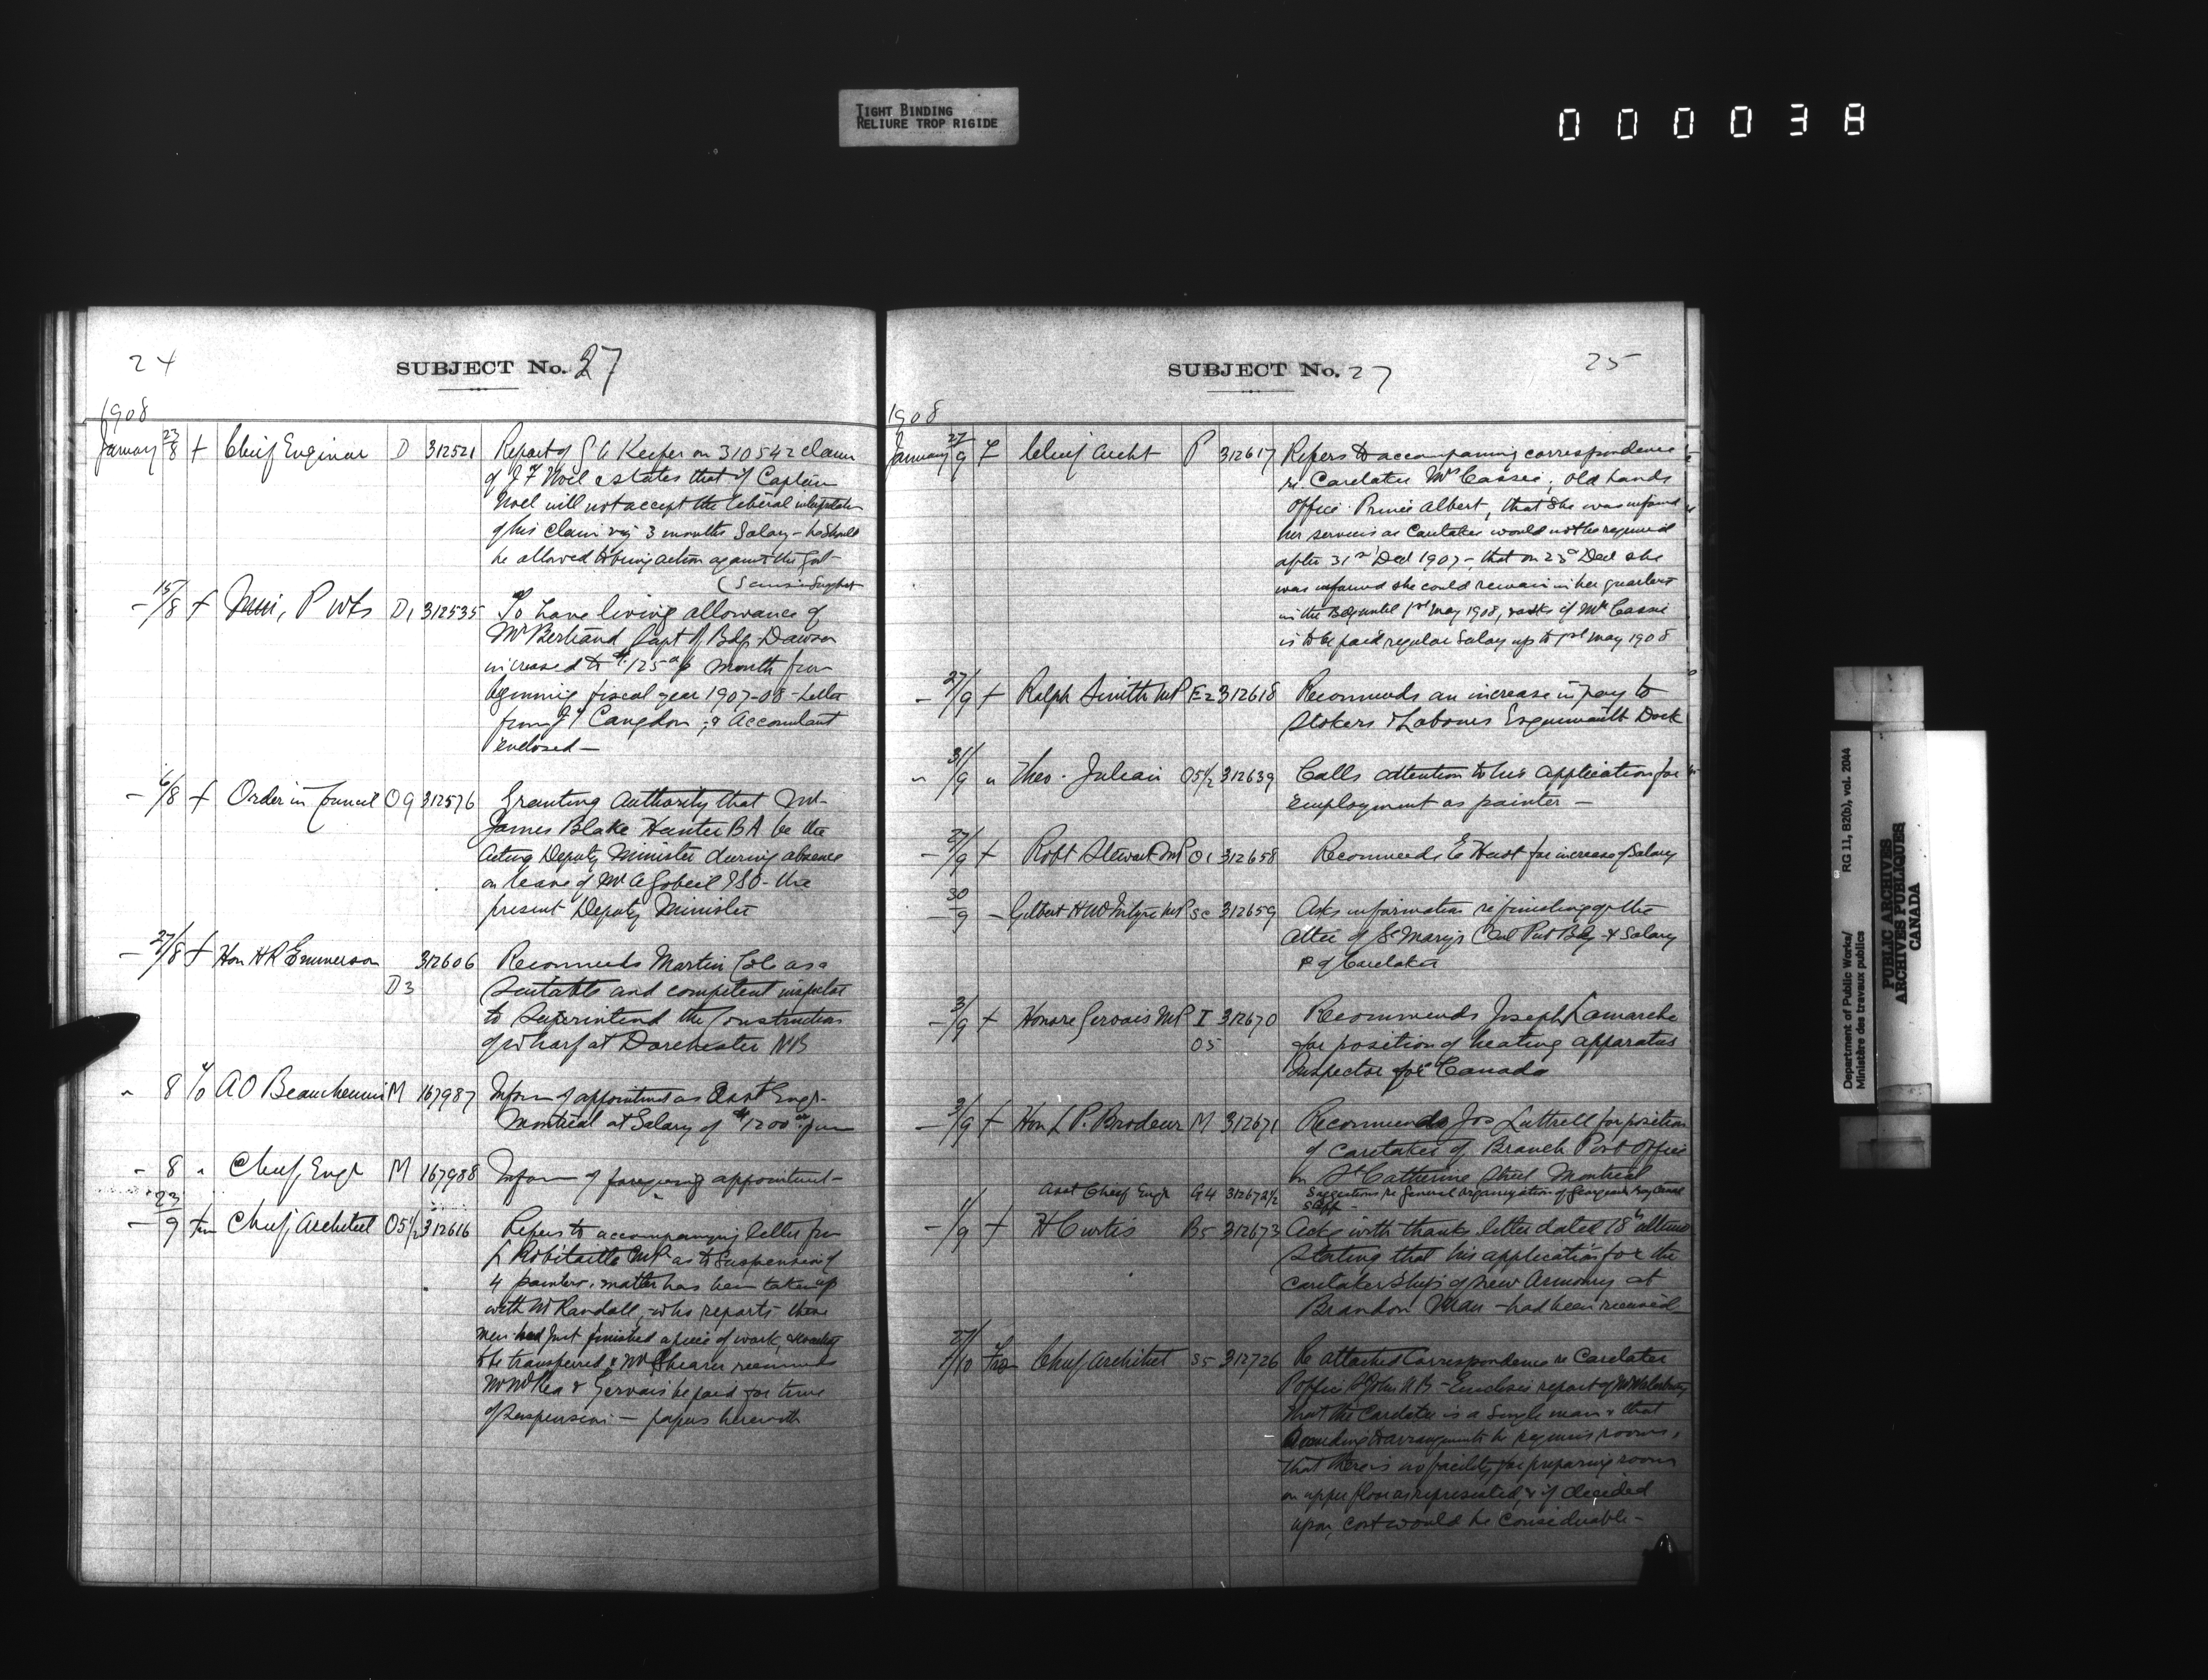 TIGHT BINDING
RELIURE TROP RIGIDE
000038
24
SUBJECT No. 27
1908
January 23/8 + Chief Engineer D 312521 Report of G A Keefer on 310542 claim
of J F Noel & states that if Captain
Noel will not accept the liberal interpretation
of his claim viz 3 months Salary - he should
be allowed to bring action against the Govt
- 15/8 + Min, P Wks D1 312535 To have living allowance of
Mr Bertrand Supt of Bdgs Dawson
increased to $125 a month from
beginning fiscal year 1907-08 - Letter
from J T Congdon, & Accountant
enclosed -
- 6/8 + Order in Council OG 312576 Granting Authority that Mr
James Blake Hunter BA be the
Acting Deputy Minister during absence
on leave of Mr A Gobeil ISO - the
present Deputy Minister
- 27/8 + Hon H R Emmerson D3 312606 Recommends Martin Cole as a
Suitable and competent inspector
to Superintend the Construction
of Wharf at Dorchester NB
" 8 A O Beauchemin M 167987 Inform of appointment as Asst Engr
Montreal at Salary of $1200 00 per
- 8 " Chief Engr M 167988 Inform of foregoing appointment -
- 23/9 Chief Architect O5 1/2 312616 Refers to accompanying letter from
L Robitaille MP as to Suspension of
4 painters, matter has been taken up
with Mr Randall, who reports these
men had just finished a piece of work,
to be transferred, & Mr Shearer recommends
Mr McRea & Gervais be paid for time
of Suspension - papers herewith
SUBJECT No. 27
25
1908
January 27/9 + Chief Archt P 312617 Refers to accompanying correspondence
re Caretaker Mrs Cassie; old Lands
Office Prince Albert, that she was informed
her services as Caretaker would not be required
after 31st Dec 1907 - that on 23d Dec she
was informed she could remain in her quarters
in the Bdg until 1st May 1908, & asks if Mrs Cassie
is to be paid regular Salary up to 1st May 1908
- 27/9 + Ralph Smith MP E2 312618 Recommends an increase in pay to
Stokers & Labourers Esquimault Dock
" 31/9 " Theo. Julien O5 1/2 312639 Calls attention to his application for
employment as painter -
- 27/9 + Robt Stewart MP O1 312658 Recommends E Hurst for increase of Salary
- 30/9 - Gilbert H McIntyre MP SC 312659 Asks information re finishing of the
Attic of St Marys Ont Pub Bdg & Salary
of Caretaker
- 3/9 + Honore Gervais MP I O5 312670 Recommends Joseph Lamarche
for position of heating apparatus
Inspector for Canada
- 3/9 + Hon L P. Brodeur M 312671 Recommends Jos Luttrell for position
of Caretaker of Branch Post Office
on St Catherine Street Montreal
Asst Chief Engr G4 312672 1/2 Suggestions re General Organization of Georgian Bay Canal
Staff -
- 1/9 + H Curtis B5 312673 Ackg with thanks letter dated 18th ultimo
Stating that his application for the
Caretakership of new Armoury at
Brandon Man - had been received
27/10 Chief Architect S5 312726 Re attached Correspondence re Caretaker
P office St John N B - Encloses report of Mr Waterbury
that the Caretaker is a Single man & that
according to arrangements he requires rooms,
that there is no facility for preparing rooms
on upper floor as represented, & if decided
upon, cost would be considerable -
Department of Public Works/ RG 11, B2(b), vol. 2044
Ministère des travaux publics
PUBLIC ARCHIVES
ARCHIVES PUBLIQUES
CANADA